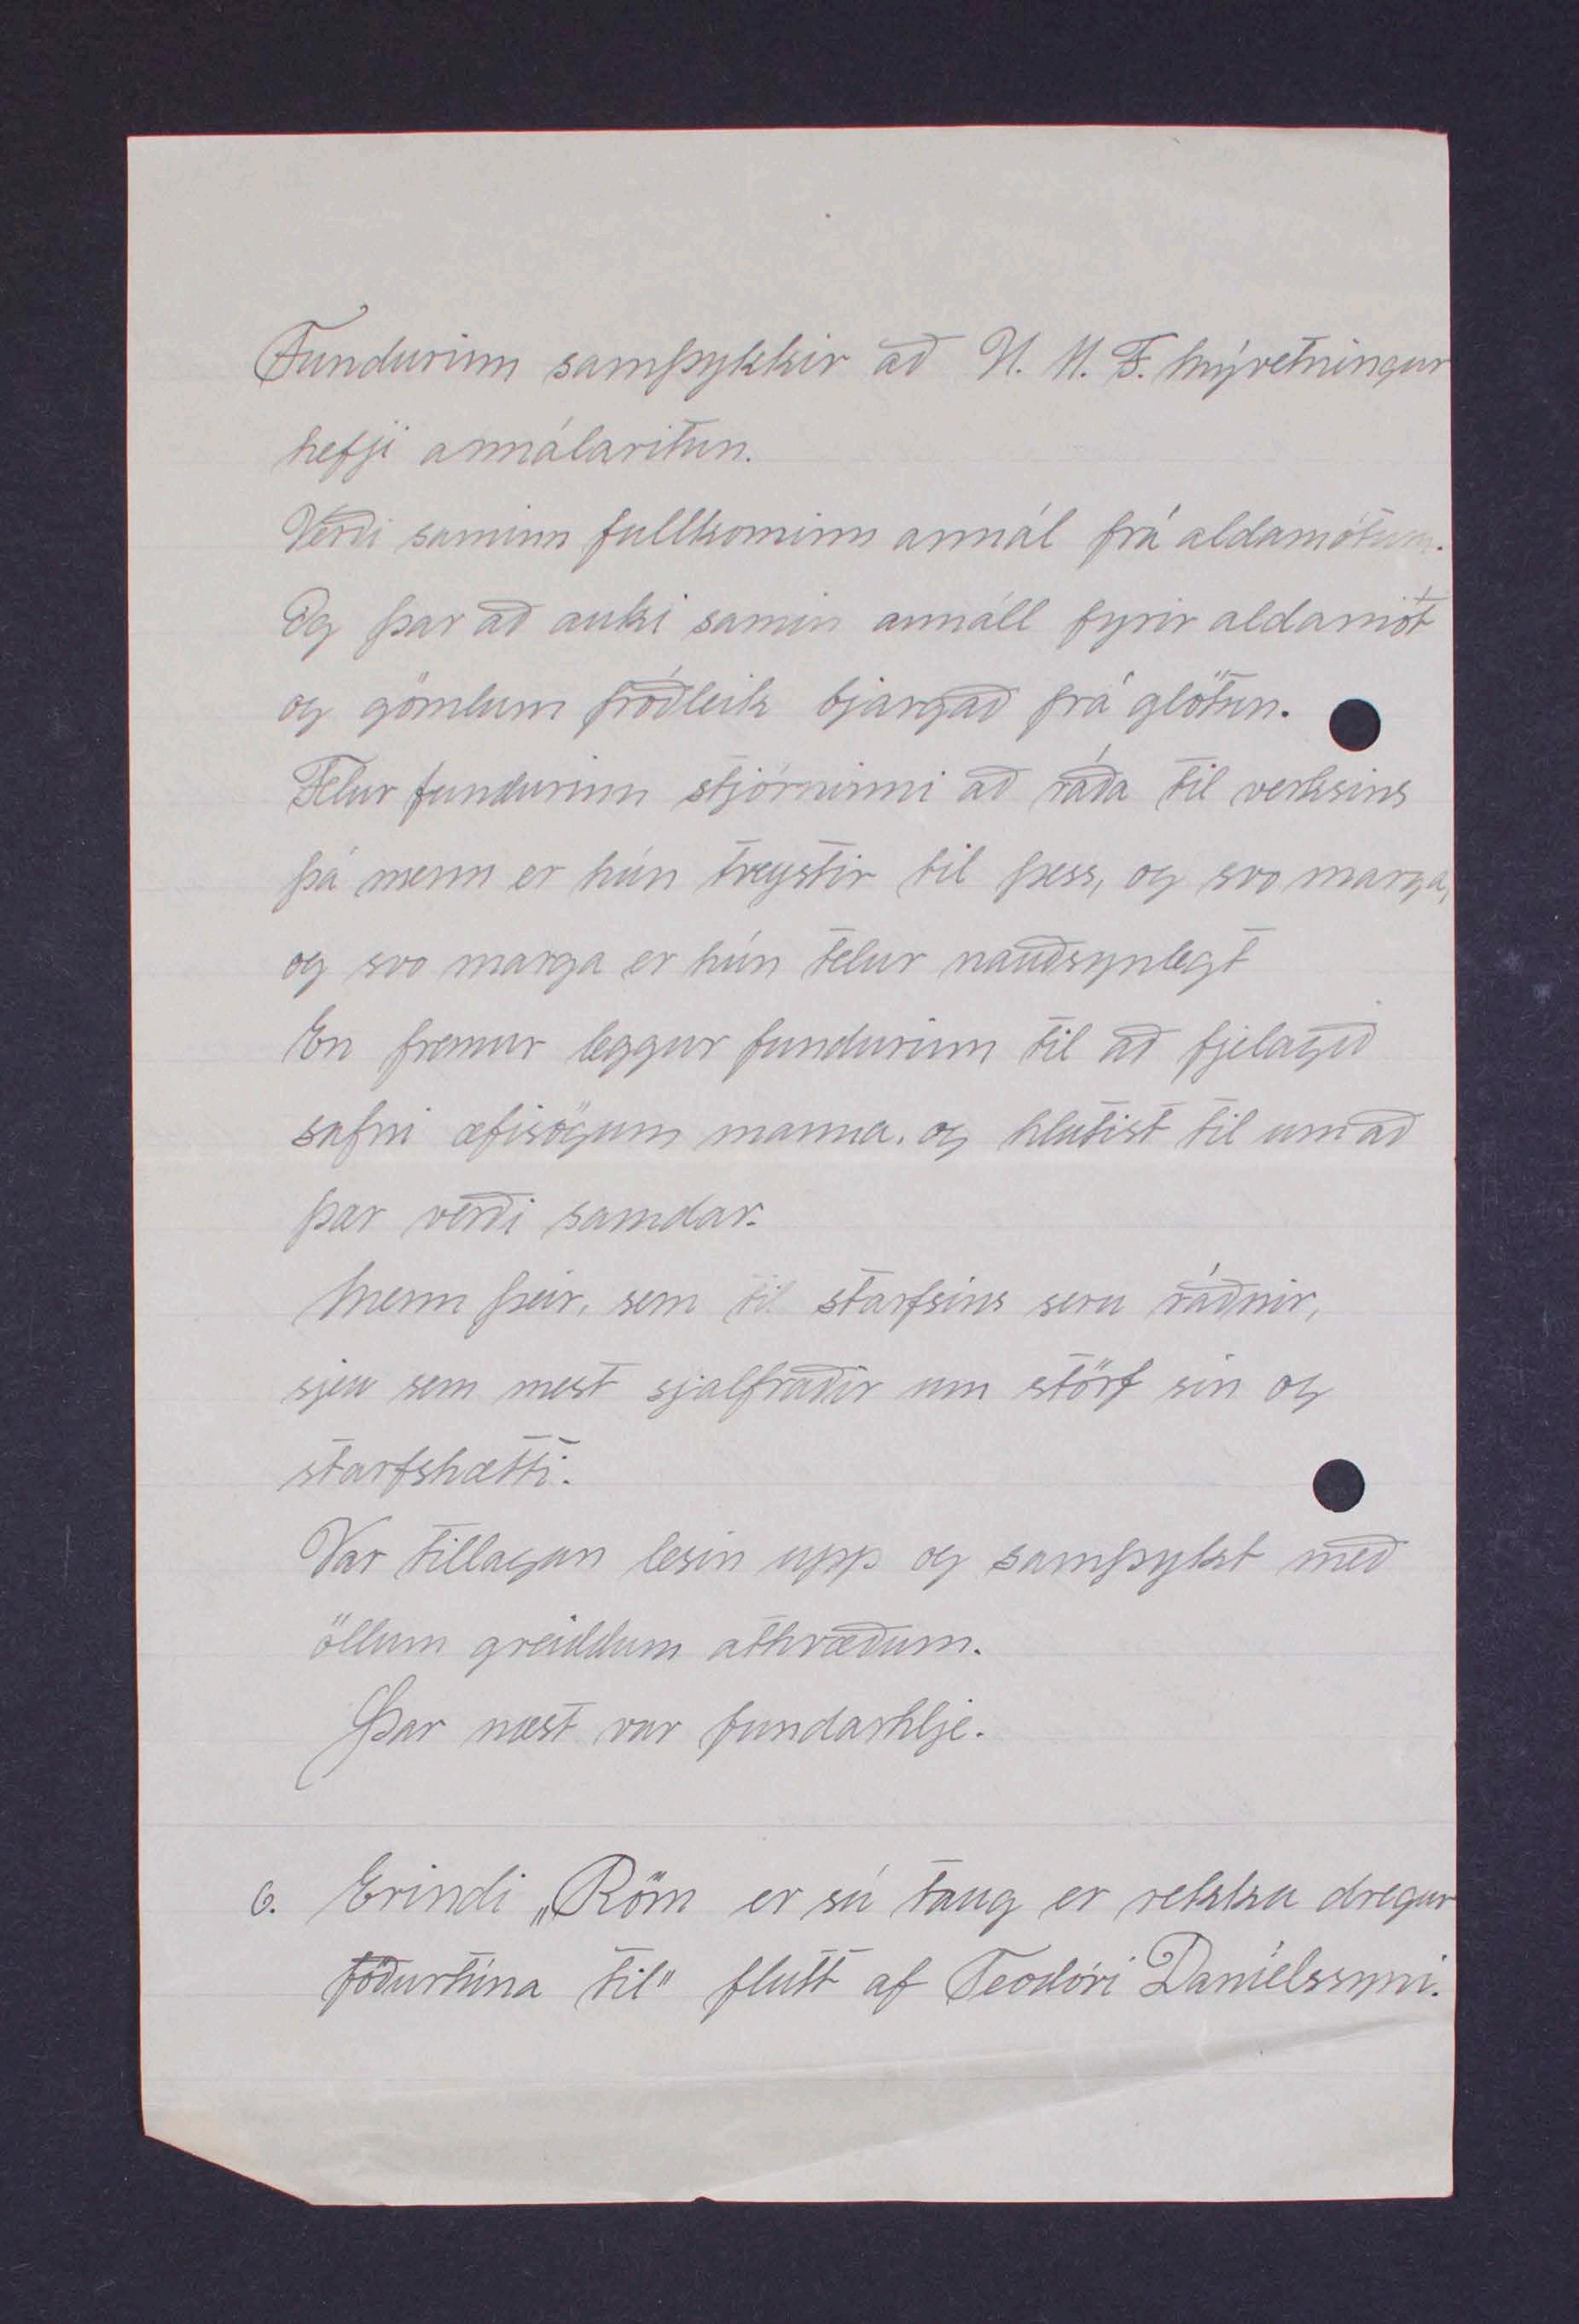 Fundurinn samþykkir að U. M. F. Mývetningur
hefji annálaritun.
Verði saminn fullkominn annál frá aldamótum.
Og þar að auki samin annáll fyrir aldamót
og gömlum fróðleik bjargað frá glötun.
Felur fundurinn stjórninni að ráða til verksins
þá menn er hún treystir til þess, og svo marga,
og svo marga er hún telur nauðsynlegt
En fremur leggur fundurinn til að fjelagið
safni æfisögum manna. og hlutist til um að
þær verði samdar.
Menn þeir, sem til starfsins seru ráðnir,
sjeu sem mest sjalfráðir um störf sín og
starfshætti.
Var tillagan lesin upp og samþykt með
öllum greiddum atkvæðum.
Þar næst var fundarhlje.
6. Erindi „Röm er sú taug er rekka dregur
föðurtúna til" flutt af Teodóri Daníelssyni.